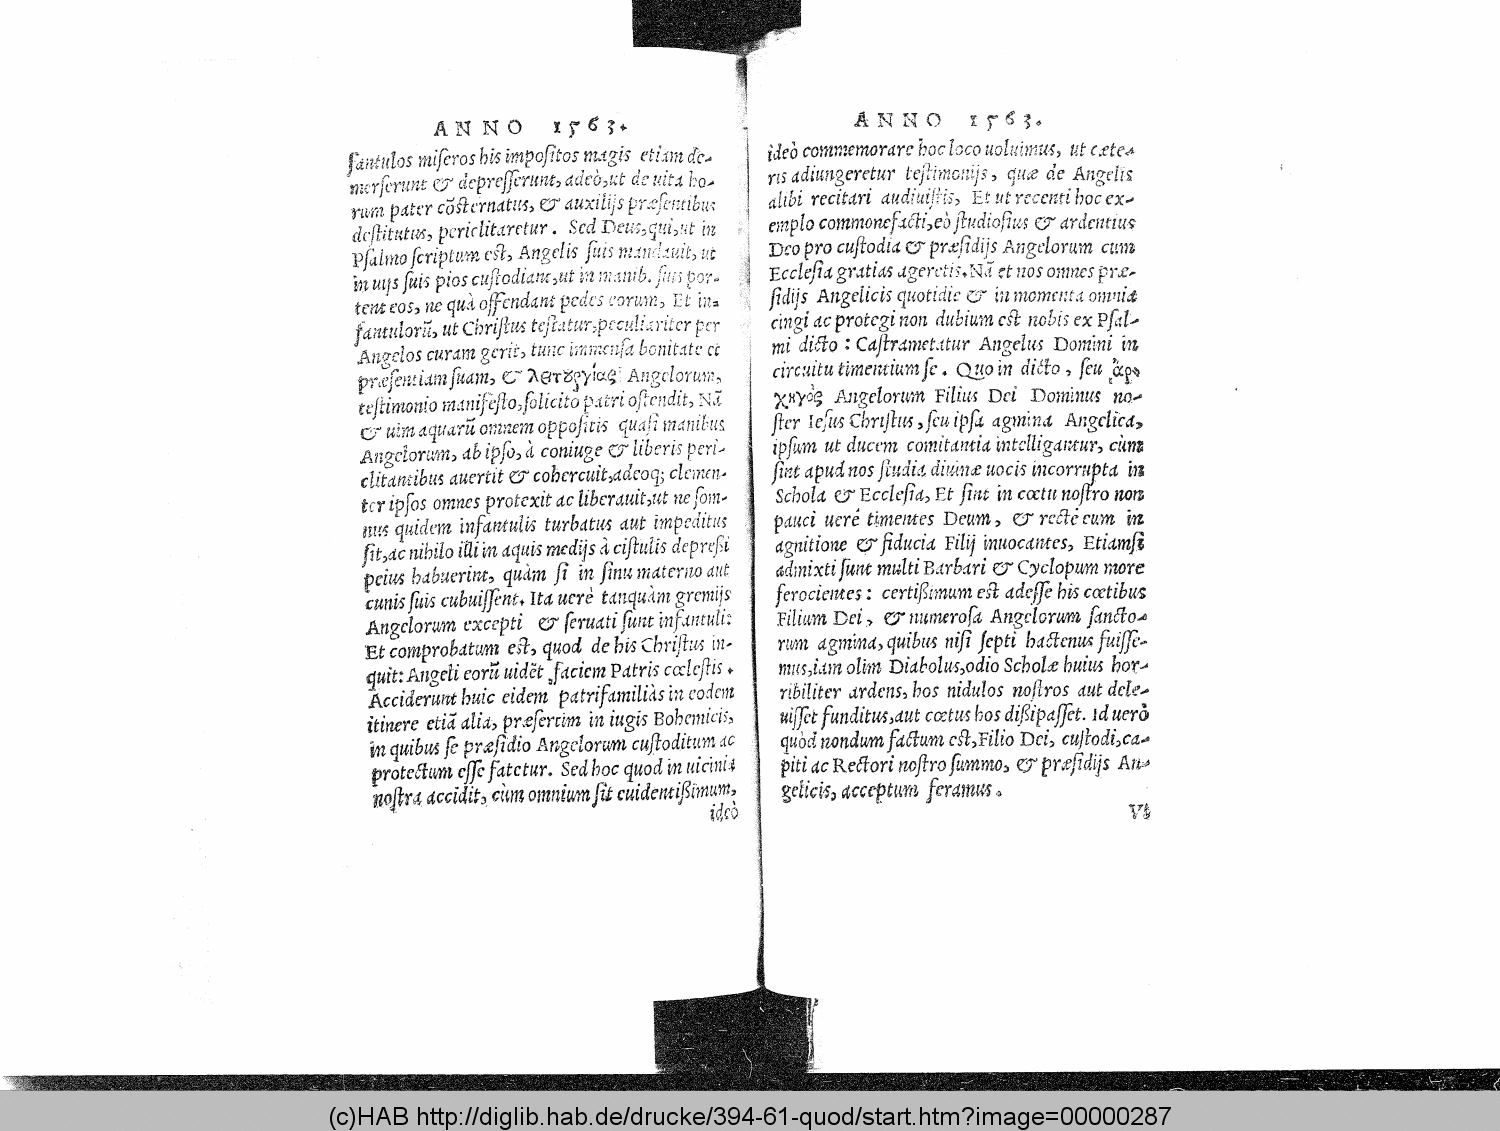 ANNO 1563.
ſantulos miſeros his impoſitos magis etiam de-
merſerunt & depreſſerunt, adeò, ut de uita ho-
rum pater cōſternatus, & auxilijs præſentibus
deſtitutus, periclitaretur. Sed Deus, qui, ut in
Pſalmo ſcriptum eſt, Angelis ſuis mandauit, ut
in uijs ſuis pios cuſtodiant, ut in manib. ſuis por-
tent eos, ne quà offendant pedes eorum, Et in-
fantulorū, ut Chriſtus teſtatur, peculiariter per
Angelos curam gerit, tunc immenſa bonitate et
præſentiam ſuam, & λειτουργίας Angelorum,
teſtimonio manifeſto, ſolicito patri oſtendit, Nā
& uim aquarū omnem oppoſitis quaſi manibus
Angelorum, ab ipſo, à coniuge & liberis peri-
clitantibus auertit & cohercuit, adeoq; clemen-
ter ipſos omnes protexit ac liberauit, ut ne ſom-
nus quidem infantulis turbatus aut impeditus
ſit, ac nihilo illi in aquis medijs à ciſtulis depreßi
peius habuerint, quàm ſi in ſinu materno aut
cunis ſuis cubuiſſent. Ita uerè tanquàm gremijs
Angelorum excepti & ſeruati ſunt infantuli:
Et comprobatum eſt, quod de his Chriſtus in-
quit: Angeli eorū uidēt faciem Patris cœleſtis.
Acciderunt huic eidem patrifamiliàs in eodem
itinere etiā alia, præſertim in iugis Bohemicis,
in quibus ſe præſidio Angelorum cuſtoditum ac
protectum eſſe fatetur. Sed hoc quod in uicinia
noſtra accidit, cùm omnium ſit euidentißimum,
ideò
ANNO 1563.
ideò commemorare hoc loco uoluimus, ut cæte-
ris adiungeretur teſtimonijs, quæ de Angelis
alibi recitari audiuiſtis, Et ut recenti hoc ex-
emplo commonefacti, eò ſtudioſius & ardentius
Deo pro cuſtodia & præſidijs Angelorum cum
Eccleſia gratias ageretis. Nā et nos omnes præ-
ſidijs Angelicis quotidie & in momenta omnia
cingi ac protegi non dubium eſt nobis ex Pſal-
mi dicto: Caſtrametatur Angelus Domini in
circuitu timentium ſe. Quo in dicto, ſeu ἀρ-
χηγὸς Angelorum Filius Dei Dominus no-
ſter Ieſus Chriſtus, ſeu ipſa agmina Angelica,
ipſum ut ducem comitantia intelligantur, cùm
ſint apud nos ſtudia diuinæ uocis incorrupta in
Schola & Eccleſia, Et ſint in cœtu noſtro non
pauci uerè timentes Deum, & rectè eum in
agnitione & fiducia Filij inuocantes, Etiamſi
admixti ſunt multi Barbari & Cyclopum more
ferocientes: certißimum eſt adeſſe his cœtibus
Filium Dei, & numeroſa Angelorum ſancto-
rum agmina, quibus niſi ſepti hactenus fuiſſe-
mus, iam olim Diabolus, odio Scholæ huius hor-
ribiliter ardens, hos nidulos noſtros aut dele-
uiſſet funditus, aut cœtus hos dißipaſſet. Id uerò
quòd nondum factum eſt, Filio Dei, cuſtodi, ca-
piti ac Rectori noſtro ſummo, & præſidijs An-
gelicis, acceptum feramus.
Vt
(c)HAB http://diglib.hab.de/drucke/394-61-quod/start.htm?image=00000287